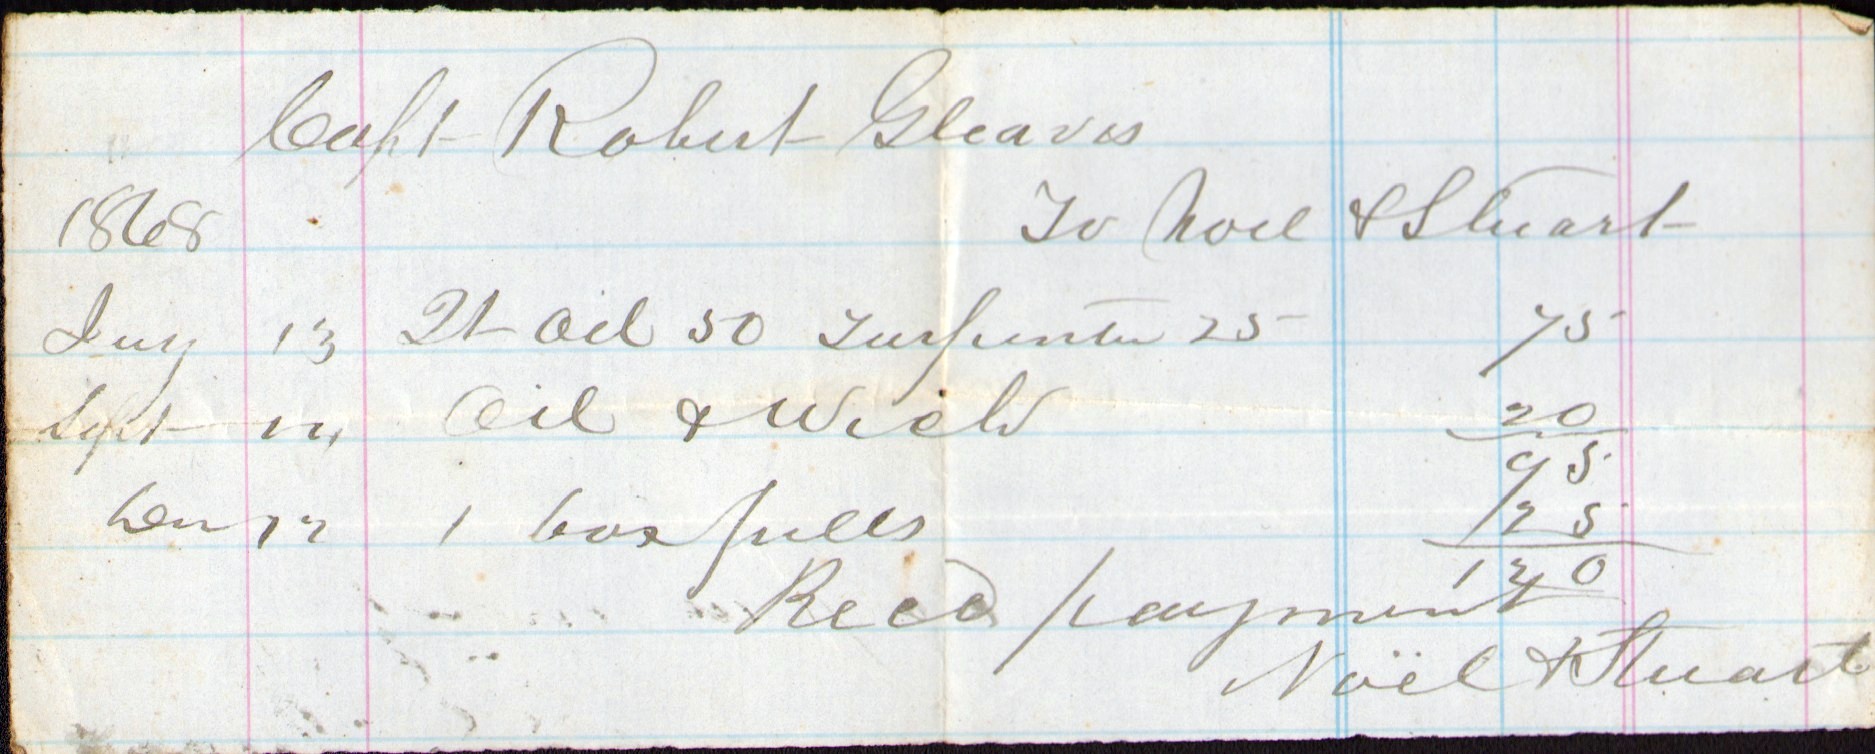 Capt Robert Gleaves
1868 To Noel & Stuart
Aug 13 Qt Oil 50 Turpentn 25 75
Sept 14 Oil & Wick 20
95
1 box pills 25
120
Recd payment
Noël & Stuart